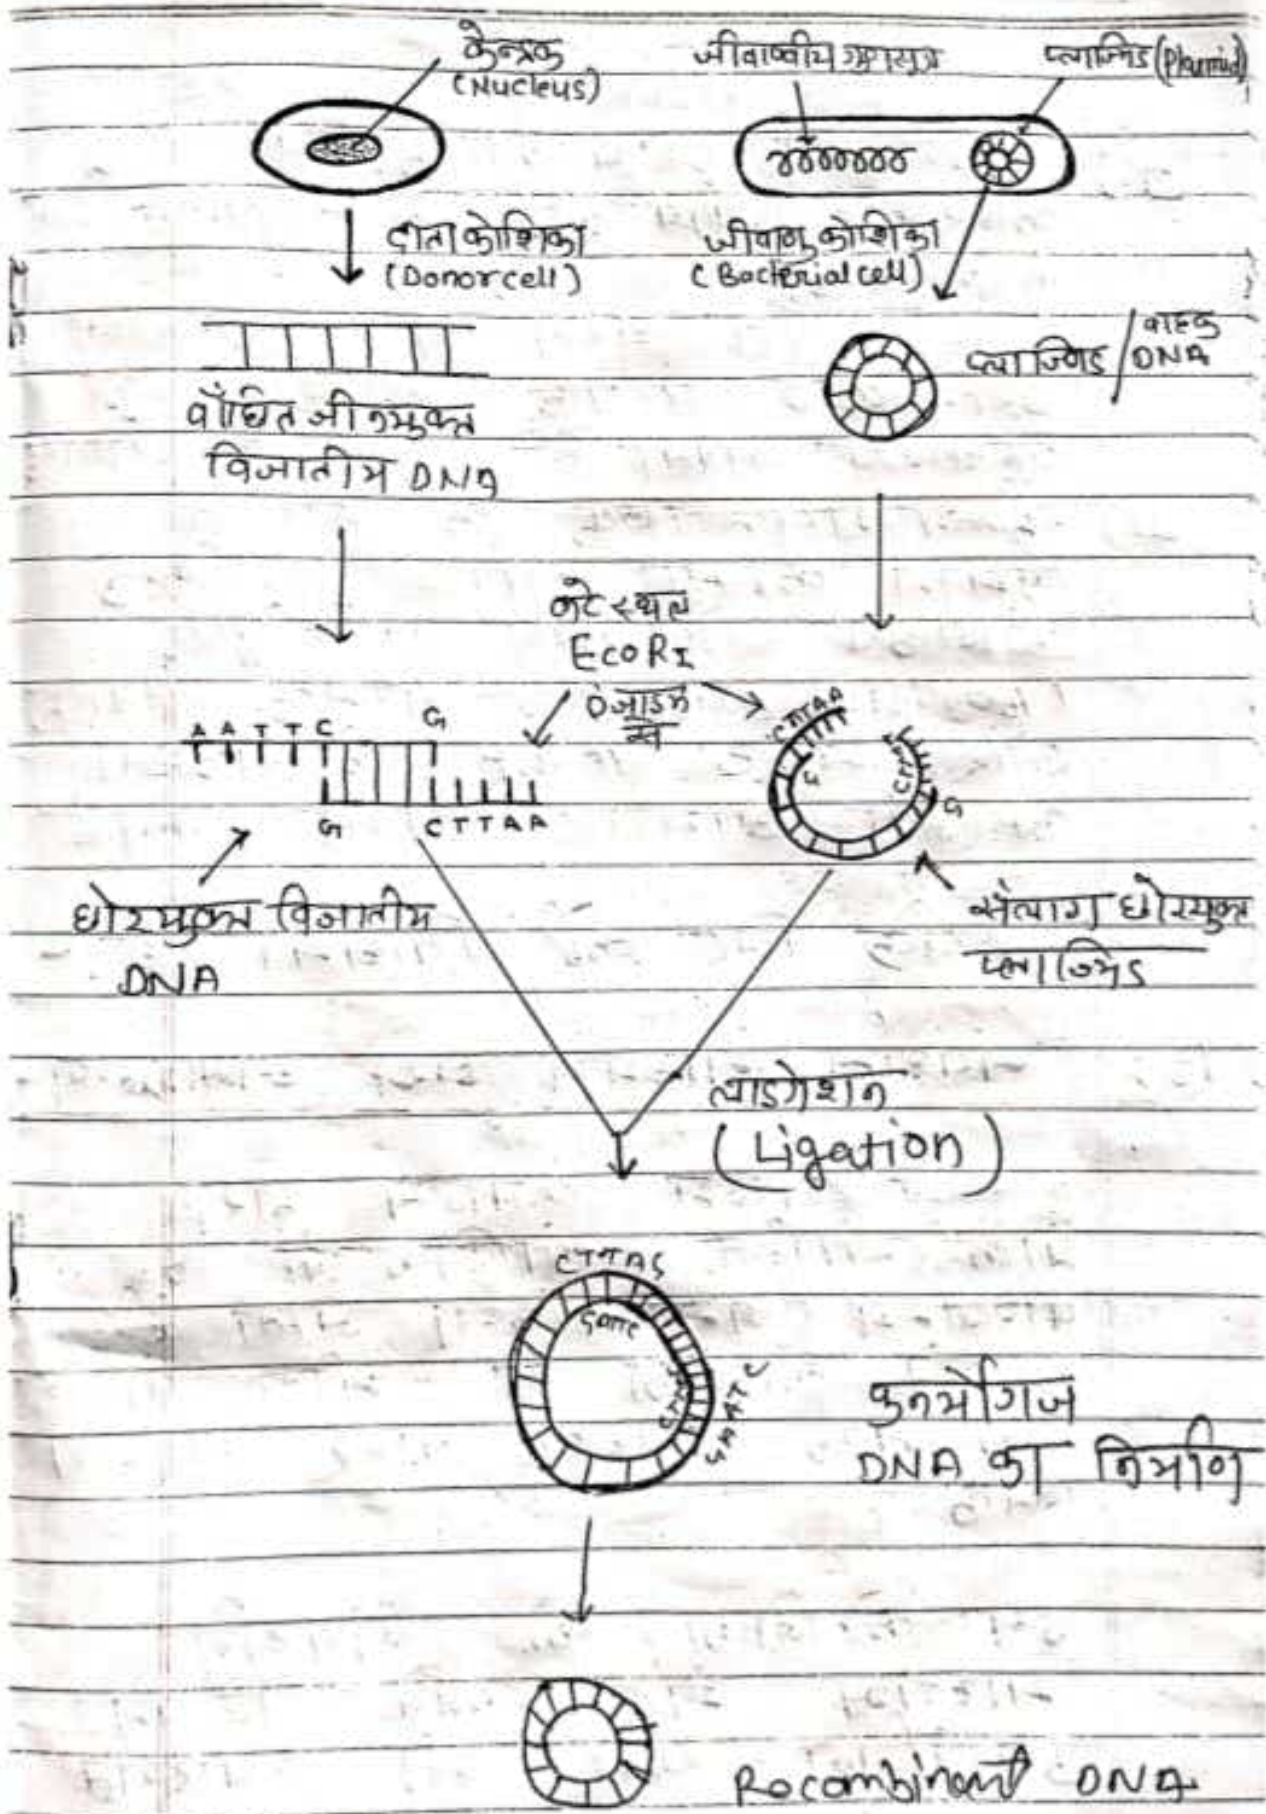 केन्द्रक
(Nucleus)
जीवाण्वीय गुणसूत्र
प्लाज्मिड (Plasmid)
दाता कोशिका
(Donor cell)
जीवाणु कोशिका
(Bacterial cell)
वाँछित जीनयुक्त
विजातीय DNA
प्लाज्मिड / वाहक
DNA
कटे स्थल
EcoRI
एंजाइम
A A T T C G
G C T T A A
CTTAA
G
छोरयुक्त विजातीय
DNA
संलाग छोरयुक्त
प्लाज्मिड
लाइगेशन
(Ligation)
CTTAG
GAATC
पुनर्योगज
DNA का निर्माण
Recombinant DNA